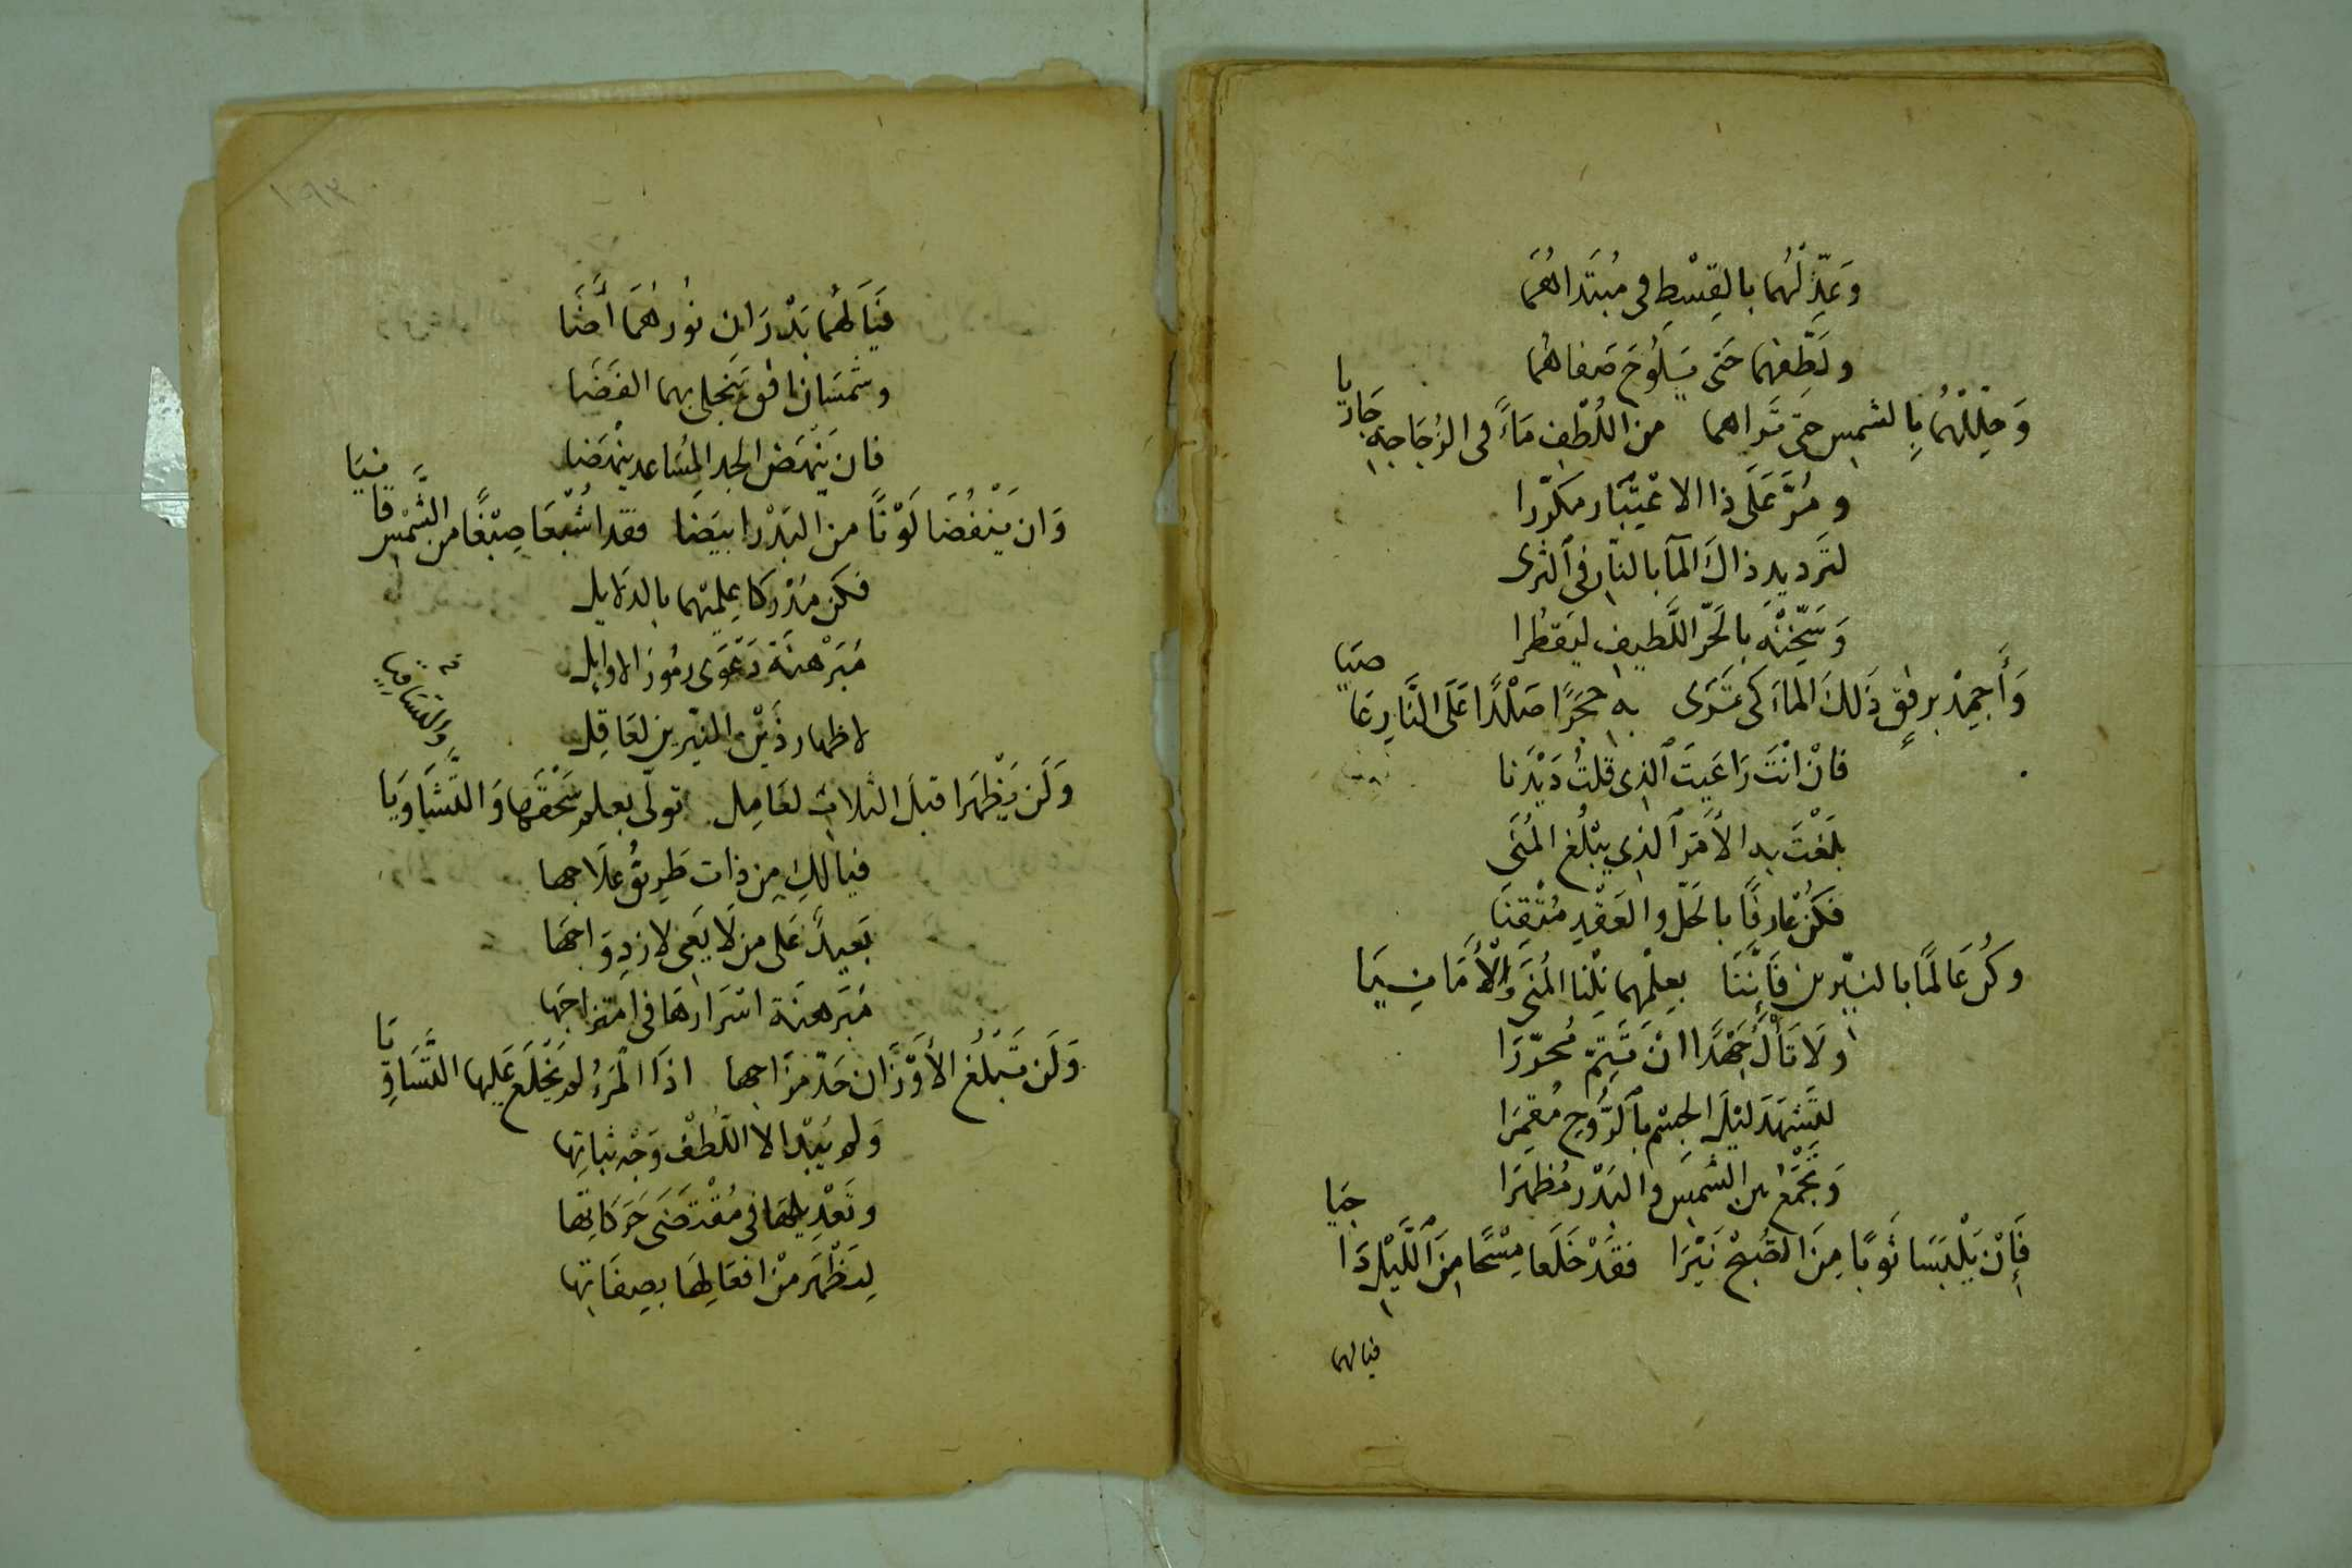 وَعَدِّلْهُما بالقِسْطِ فى مُبتَداهُمَا
ولَطِّفهما حَتى يَلُوحَ صَفاهُما
وَحِلِّلْهُما بِالشمسِ حَتى تَراهما من اللُطْفِ مَاءً فى الزُجَاجة جَاريا
ومُرَّ عَلَى ذا الاعْتِبَار مكرّرا
لتَرديدِ ذاكَ المآ بالنّار فى الثرى
وَسَخّنْهُ بالحَرّ اللَّطيفِ ليَقطُرا
وَأَجمِدْ برفقٍ ذَلكَ الماءَ كى تَرَى به حجَرًا صَلْدًا عَلَى النَّارِ عَاصيا
فانْ انْتَ رَاعَيتَ الذى قلتُ دَيْدَنا
بَلَغْتَ به الأَمَر الذي يبْلُغ المُنَى
فكنْ عارفًا بالحَلّ والعَقْدِ مُتْقِنَا
وكُن عَالمًا بالنيّرين فَإنَّنَا بعِلْمهما نِلْنا المُنَى وَالْأَمَانِيَا
ولَا تَأْلُ جَهْدًا انْ تَتِمّ مُحرّرَا
لتَشهَدَ لَيْلَ الجسْم بالرُّوحِ مُقمِرَا
وَتجْمَعْ بين الشمسِ والبَدْر مُظهِرَا
فَإنْ يَلْبَسَا ثَوبًا مِنَ الصُبحْ نَيّرَا فقَدْ خَلَعا مِسْحًا مِنَ اللَّيْلِ دَاجيا
فيالهما
١٠٩٣
فيَا لهُما بَدْرَان نُورهُمَا أضَا
وشَمسَان افق ينجلى بهما الفَضَا
فان يَنْهَض الجد المُسَاعد ينْهَضا
وَان ينْفُضَا لَوْنًا من البَدْر ابيَضا فقد اشْبعَا صِبْغًا من الشَّمْسِ قانيَا
فكن مُدْركا عِلميّهما بالدَلايل
مُبَرْهنَة دَعْوَى رمُوز الاوايل
لاظهار ذَيْن المنيّرين لعَاقِل
وَلَن يَظْهَرا قبلَ الثلاث لعَامِل تولّى بعلم سَحْقَها وَالتَّشَاويَا
والتسَاقيا
فيالكِ مِن ذات طَريق علَاجها
بَعيدٌ عَلى من لَا يَعى لازدِوَاجهَا
مُبَرهنَة اسْرَارهَا فى امتزاجهَا
وَلَن تَبلُغ الأَوْزَان حَدّ مزَاجها اذَا المَرءُ لم يَخْلَعْ عَليها التَّسَاويَا
وَلم يَبْد الا اللُّطْف وَجْه ثباتِها
وتَعْديلها فى مُقْتضَى حَرَكاتها
لِيَظْهَر منْ افعَالِها بصِفَاتِها